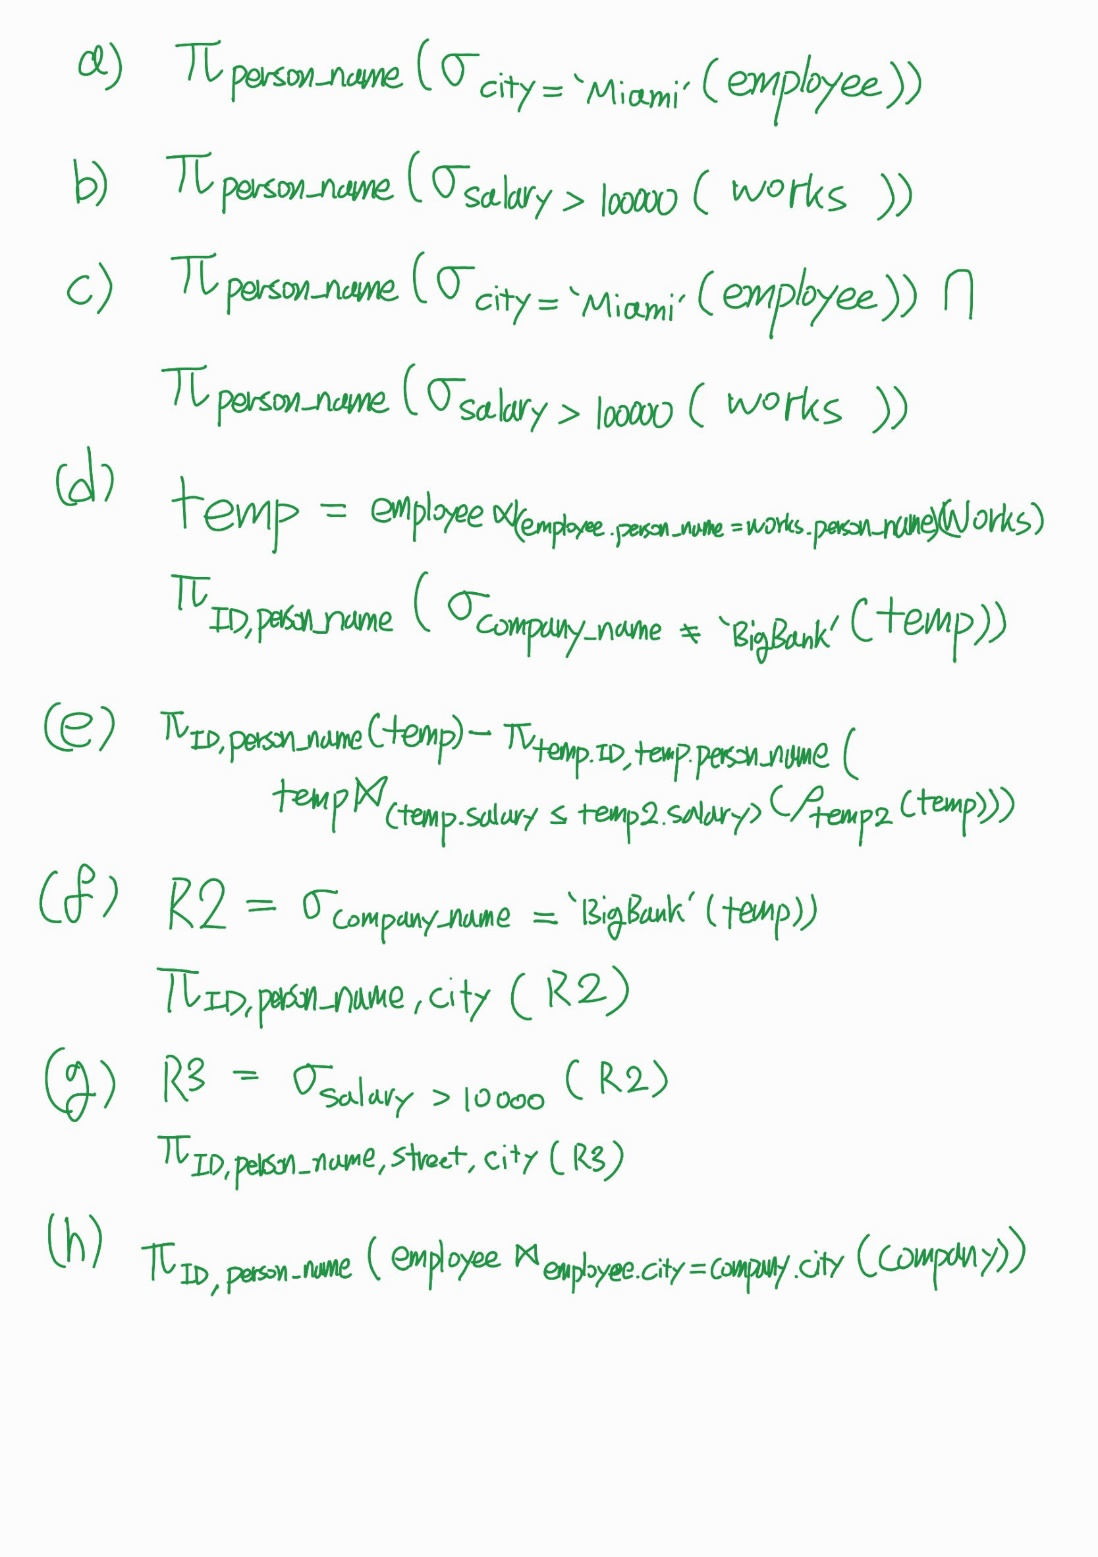 a) π person_name (σ city = `Miami´ (employee))
b) π person_name (σ salary > 100000 ( works ))
c) π person_name (σ city = `Miami´ (employee)) ∩
π person_name (σ salary > 100000 ( works ))
(d) temp = employee ⋈(employee.person_name = works.person_name)(Works)
π ID, person_name ( σ company_name ≠ `BigBank´ (temp))
(e) π ID, person_name (temp) − π temp.ID, temp.person_name (
temp ⋈ (temp.salary ≤ temp2.salary) (ρ temp2 (temp)))
(f) R2 = σ company_name = `BigBank´ (temp))
π ID, person_name, city ( R2)
(g) R3 = σ salary > 10000 ( R2)
π ID, person_name, street, city ( R3)
(h) π ID, person_name ( employee ⋈ employee.city = company.city (company))